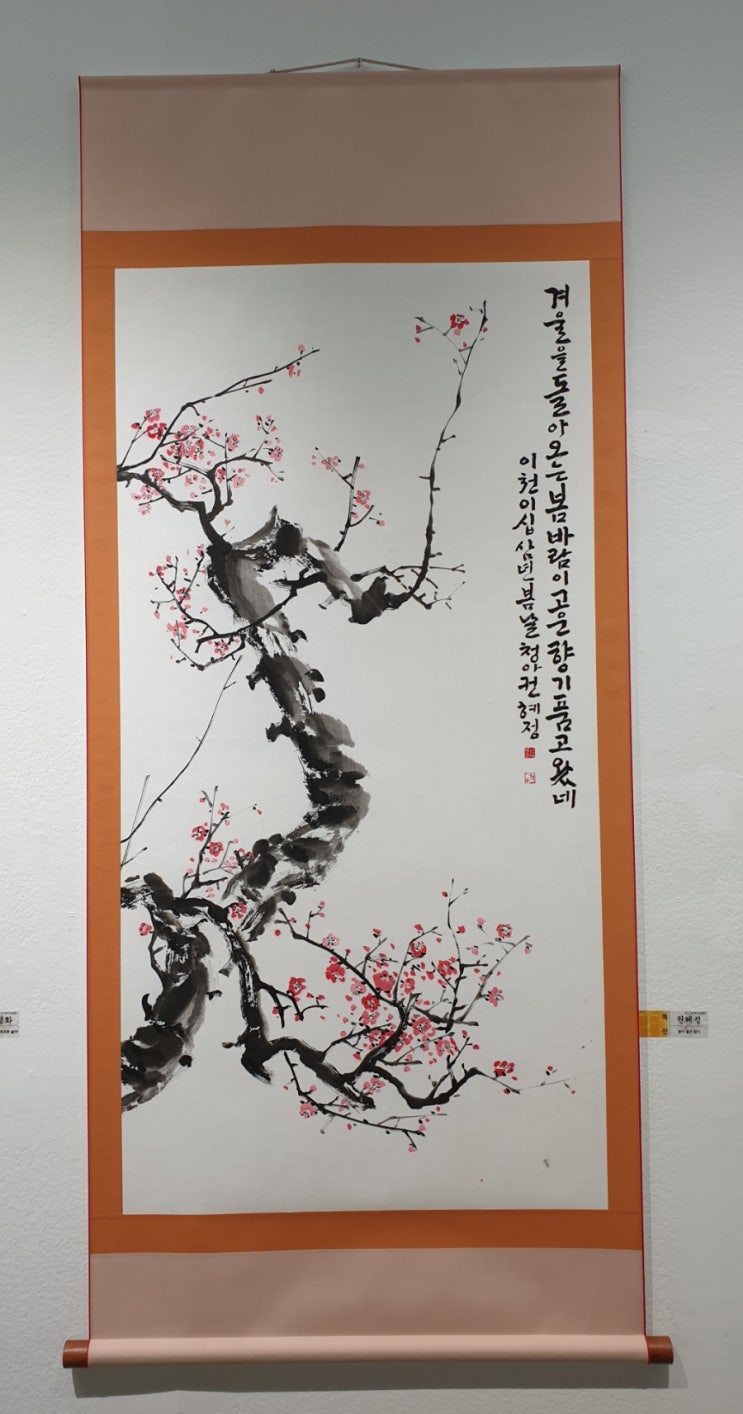 겨울을 돌아 온는 봄바람이 고운 향기 품고 왔네
이천이십삼년 봄날 청아 권혜정
특선
권혜정